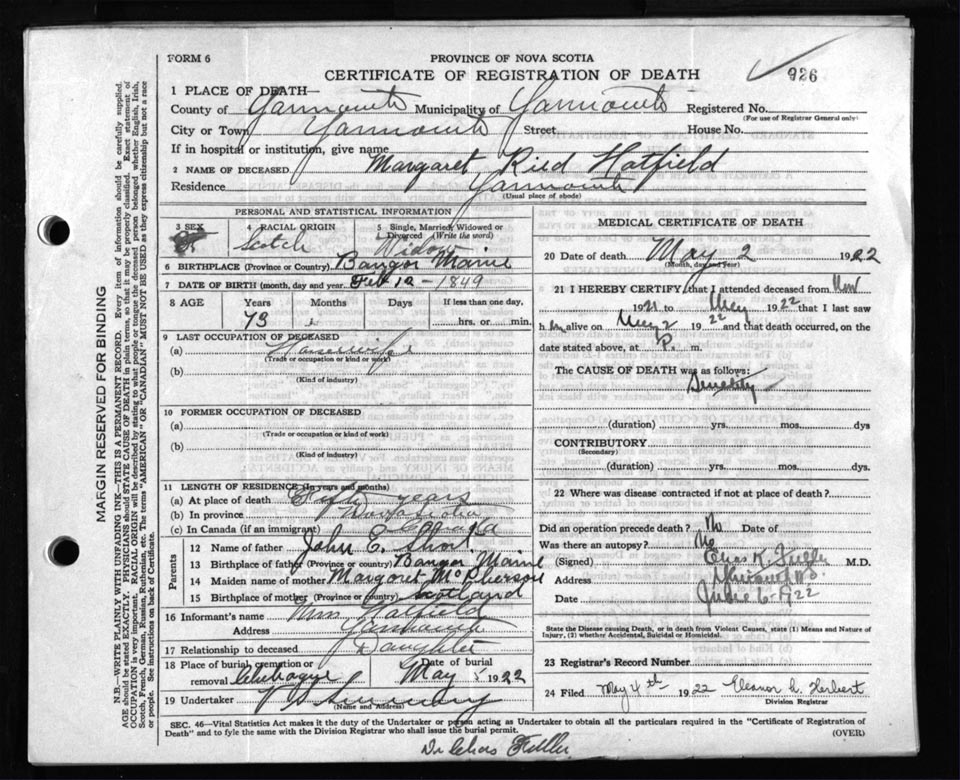 FORM 6
PROVINCE OF NOVA SCOTIA
CERTIFICATE OF REGISTRATION OF DEATH
926
1 PLACE OF DEATH—
County of Yarmouth Municipality of Yarmouth Registered No.
(For use of Registrar General only)
City or Town Yarmouth Street House No.
If in hospital or institution, give name
2 NAME OF DECEASED Margaret Ried Hatfield
Residence Yarmouth
(Usual place of abode)
PERSONAL AND STATISTICAL INFORMATION
3 SEX 4 RACIAL ORIGIN 5 Single, Married, Widowed or
Divorced (Write the word)
Scotch Widow
6 BIRTHPLACE (Province or Country) Bangor Maine
7 DATE OF BIRTH (month, day and year) Feb 12 - 1849
8 AGE Years Months Days If less than one day,
73 hrs. or min.
9 LAST OCCUPATION OF DECEASED
(a) Housewife
(Trade or occupation or kind or work)
(b)
(Kind of industry)
10 FORMER OCCUPATION OF DECEASED
(a)
(Trade or occupation or kind of work)
(b)
(Kind of industry)
11 LENGTH OF RESIDENCE (In years and months)
(a) At place of death years
(b) In province Nova Scotia
(c) In Canada (if an immigrant) Canada
Parents
12 Name of father John E. Short
13 Birthplace of father (Province or country) Bangor Maine
14 Maiden name of mother Margaret McPherson
15 Birthplace of mother (Province or country) Scotland
16 Informant's name Hatfield
Address Yarmouth
17 Relationship to deceased Daughter
18 Place of burial, cremation or Date of burial
removal Chebogue May 5 1922
19 Undertaker V S Sweeney
(Name and Address)
MEDICAL CERTIFICATE OF DEATH
20 Date of death May 2 1922
(Month, day and year)
21 I HEREBY CERTIFY that I attended deceased from Nov
1921 to May 1922 that I last saw
h alive on May 2 1922 and that death occurred, on
date stated above, at P. m.
The CAUSE OF DEATH was as follows:
Senility
(duration) yrs. mos. dys
CONTRIBUTORY
(Secondary)
(duration) yrs. mos. dys.
22 Where was disease contracted if not at place of death?
Did an operation precede death? No Date of
Was there an autopsy? No
(Signed) Chas K. Fuller M.D.
Address
Date 1922
State the Disease causing Death, or in death from Violent Causes, state (1) Means and Nature of
Injury, (2) whether Accidental, Suicidal or Homicidal.
23 Registrar's Record Number
24 Filed May 4th 1922 Eleanor L. Herbert
Division Registrar
SEC. 46—Vital Statistics Act makes it the duty of the Undertaker or person acting as Undertaker to obtain all the particulars required in the "Certificate of Registration of
Death" and to fyle the same with the Division Registrar who shall issue the burial permit.
(OVER)
Dr Chas Fuller
MARGIN RESERVED FOR BINDING
N.B.—WRITE PLAINLY WITH UNFADING INK—THIS IS A PERMANENT RECORD. Every item of information should be carefully supplied.
AGE should be stated EXACTLY. PHYSICIANS should STATE CAUSE OF DEATH in plain terms, so that it may be properly classified. Exact statement of
OCCUPATION is very important. RACIAL ORIGIN will be described by stating to what people or tongue the deceased person belonged whether English, Irish,
Scotch, French, German, Russian, Ruthenian, etc. The terms "AMERICAN" or "CANADIAN" MUST NOT BE USED as they express citizenship but not a race
or people. See instructions on back of Certificate.